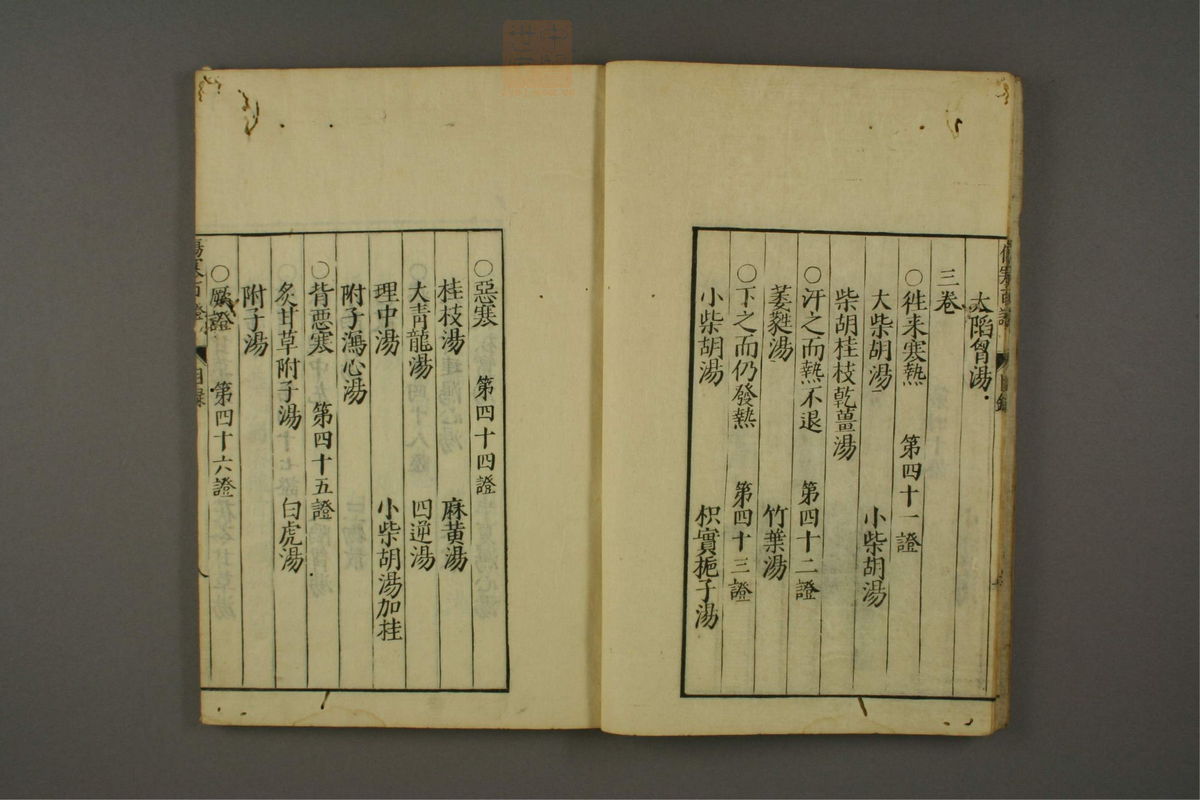 大陷胷湯
三卷
○徃来寒熱 第四十一證
大柴胡湯 小柴胡湯
柴胡桂枝乾薑湯
○汗之而熱不退 第四十二證
萎蕤湯 竹葉湯
○下之而仍發熱 第四十三證
小柴胡湯 枳實梔子湯
○惡寒 第四十四證
桂枝湯 麻黃湯
大青龍湯 四逆湯
理中湯 小柴胡湯加桂
附子瀉心湯
○背惡寒 第四十五證
炙甘草附子湯 白虎湯
附子湯
○厥證 第四十六證
傷寒百證 目錄